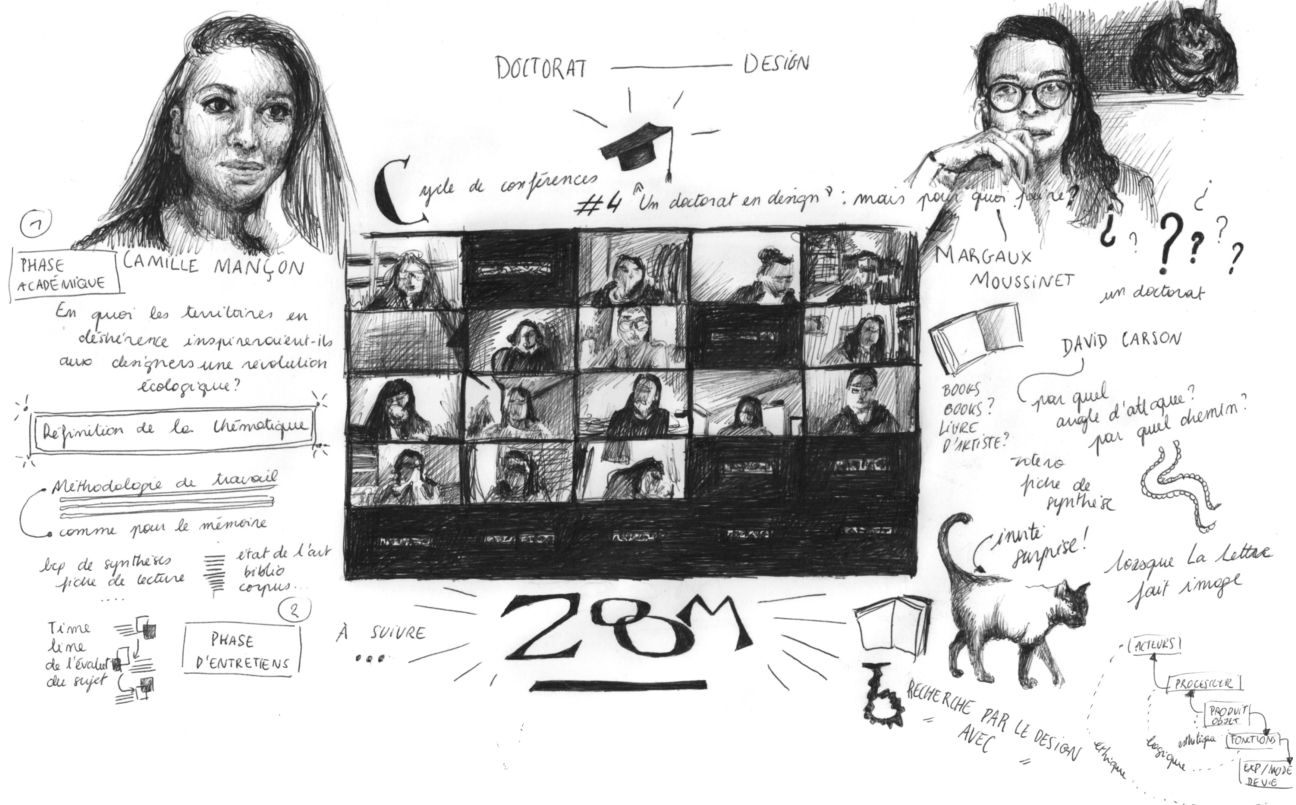 DOCTORAT — DESIGN
Cycle de conférences
#4 "Un doctorat en design" : mais pour quoi faire?
1
PHASE
ACADÉMIQUE
CAMILLE MANÇON
En quoi les territoires en
déshérence inspireraient-ils
aux designers une révolution
écologique?
Définition de la thématique
Méthodologie de travail
comme pour le mémoire
bcp de synthèses
fiche de lecture
....
état de l'art
biblio
corpus...
Time
line
de l'évolut
du sujet
2
PHASE
D'ENTRETIENS
À SUIVRE
...
ZOOM
MARGAUX
MOUSSINET
¿ ? ? ? ¿ ? ?
un doctorat
DAVID CARSON
BOOKS
BOOKS?
LIVRE
D'ARTISTE?
par quel
angle d'attaque?
par quel chemin?
fiche de
synthèse
invité
surprise!
lorsque La lettre
fait image
RECHERCHE PAR LE DESIGN
= AVEC =
ACTEURS
PROCESSUR
PRODUIT
OBJET
FONCTIONS
EXP/MODE
DE VIE
éthique
logique
esthétique